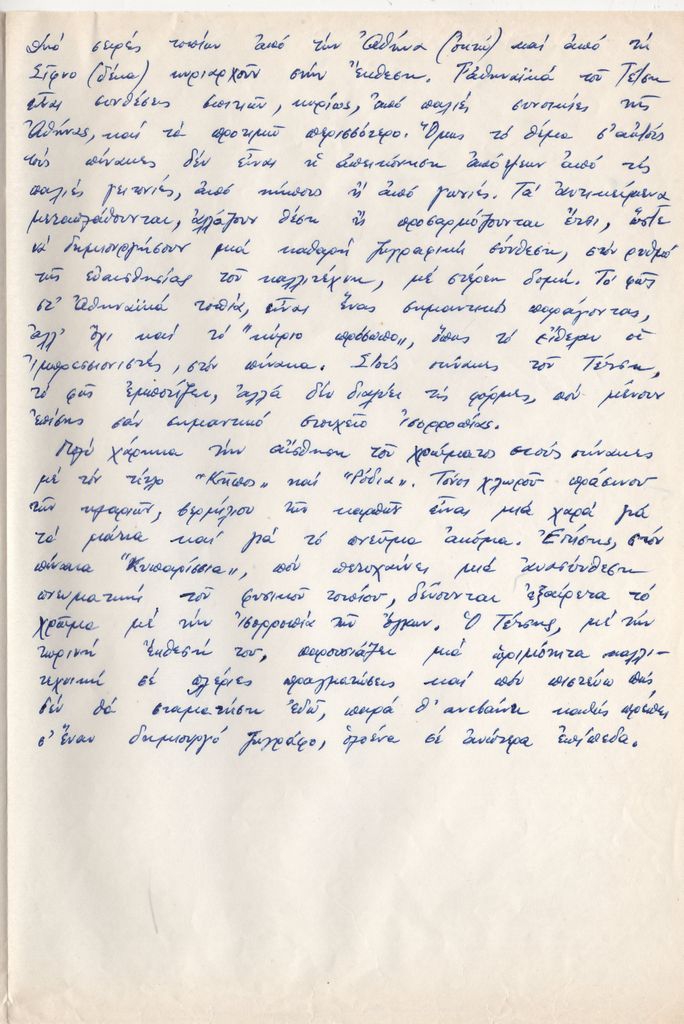 Δυό σειρές τοπίων ἀπό τήν Ἀθήνα (ὀκτώ) καί ἀπό τή
Σίφνο (δέκα) κυριαρχοῦν στήν Ἔκθεση. Τ' ἀθηναϊκά τοῦ Τέτση
εἶναι συνθέσεις σπιτιῶν, κυρίως, ἀπό παλιές συνοικίες τῆς
Ἀθήνας, καί τά προτιμῶ περισσότερο. Ὅμως τό θέμα σ' αὐτούς
τούς πίνακες δέν εἶναι ἡ ἀπεικόνιση ἀπόψεων ἀπό τίς
παλιές γειτονιές, ἀπό κήπους ἤ ἀπό γωνιές. Τά ἀντικείμενα
μεταπλάθονται, ἀλλάζουν θέση ἤ προσαρμόζονται ἔτσι, ὥστε
νά δημιουργήσουν μιά καθαρή ζωγραφική σύνθεση, στόν ρυθμό
τῆς εὐαισθησίας τοῦ καλλιτέχνη, μέ στέρεη δομή. Τό φῶς
στ' Ἀθηναϊκά τοπία, εἶναι ἕνας σημαντικός παράγοντας,
ἀλλ' ὄχι καί τό "κύριο πρόσωπο", ὅπως τό ἤθελαν οἱ
ἰμπρεσσιονιστές, στόν πίνακα. Στούς πίνακες τοῦ Τέτση,
τό φῶς ἐμποτίζει, ἀλλά δέν διαλύει τίς φόρμες, πού μένουν
ἐπίσης σάν σημαντικό στοιχεῖο ἰσορροπίας.
Πολύ χάρηκα τήν αἴσθηση τοῦ χρώματος στούς πίνακες
μέ τόν τίτλο "Κῆπος" καί "Ρόδια". Τόνοι χλωροῦ πράσινου
τῶν, βερμίλιου τῶν καρπῶν εἶναι μιά χαρά γιά
τά μάτια καί γιά τό πνεῦμα ἀκόμα. Ἐπίσης, στόν
πίνακα "Κυπαρίσσια", πού πετυχαίνει μιά ἀνασύνθεση
πνευματική τοῦ φυσικοῦ τοπίου, δένονται ἐξαίρετα τό
χρῶμα μέ τήν ἰσορροπία τῶν ὄγκων. Ὁ Τέτσης, μέ τήν
τωρινή ἔκθεσή του, παρουσιάζει μιά ὡριμότητα καλλι-
τεχνική σέ πλέριες πραγματώσεις καί πού πιστεύω πώς
δέν θά σταματήση ἐδῶ, παρά θ' ἀνεβαίνει καθώς πρέπει
σ' ἕναν δημιουργό ζωγράφο, ὁλοένα σέ ἀνώτερα ἐπίπεδα.